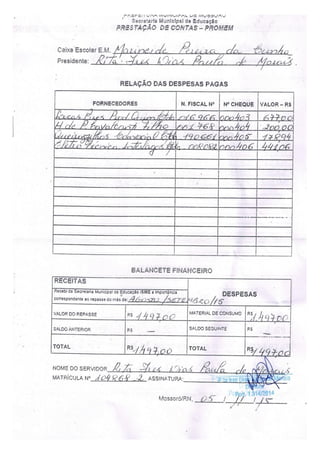 PREFEITURA MUNICIPAL DE MOSSORÓ
Secretaria Municipal de Educação
PRESTAÇÃO DE CONTAS - PROMEM
Caixa Escolar E.M. Marineide Pereira da Cunha
Presidente: Rita Dias Paula de Morais
RELAÇÃO DAS DESPESAS PAGAS
FORNECEDORES N. FISCAL Nº Nº CHEQUE VALOR - R$
016.966 000403 677,00
H. de P. Cavalcanti Filho 001.768 000404 200,00
190661 000405 178,94
Eletro Técnica 008082 000406 441,06
BALANCETE FINANCEIRO
RECEITAS
Recebi da Secretaria Municipal de Educação /SME a importância
correspondente ao repasse do mês de Agosto/SETEMBRO/15
DESPESAS
VALOR DO REPASSE R$ 1.497,00 MATERIAL DE CONSUMO R$ 1.497,00
SALDO ANTERIOR R$ — SALDO SEGUINTE R$ —
TOTAL R$ 1.497,00 TOTAL R$ 1.497,00
NOME DO SERVIDOR Rita Dias Paula de Morais
MATRÍCULA Nº 104868-2 ASSINATURA:
Mossoró/RN, 05 / 11 / 15